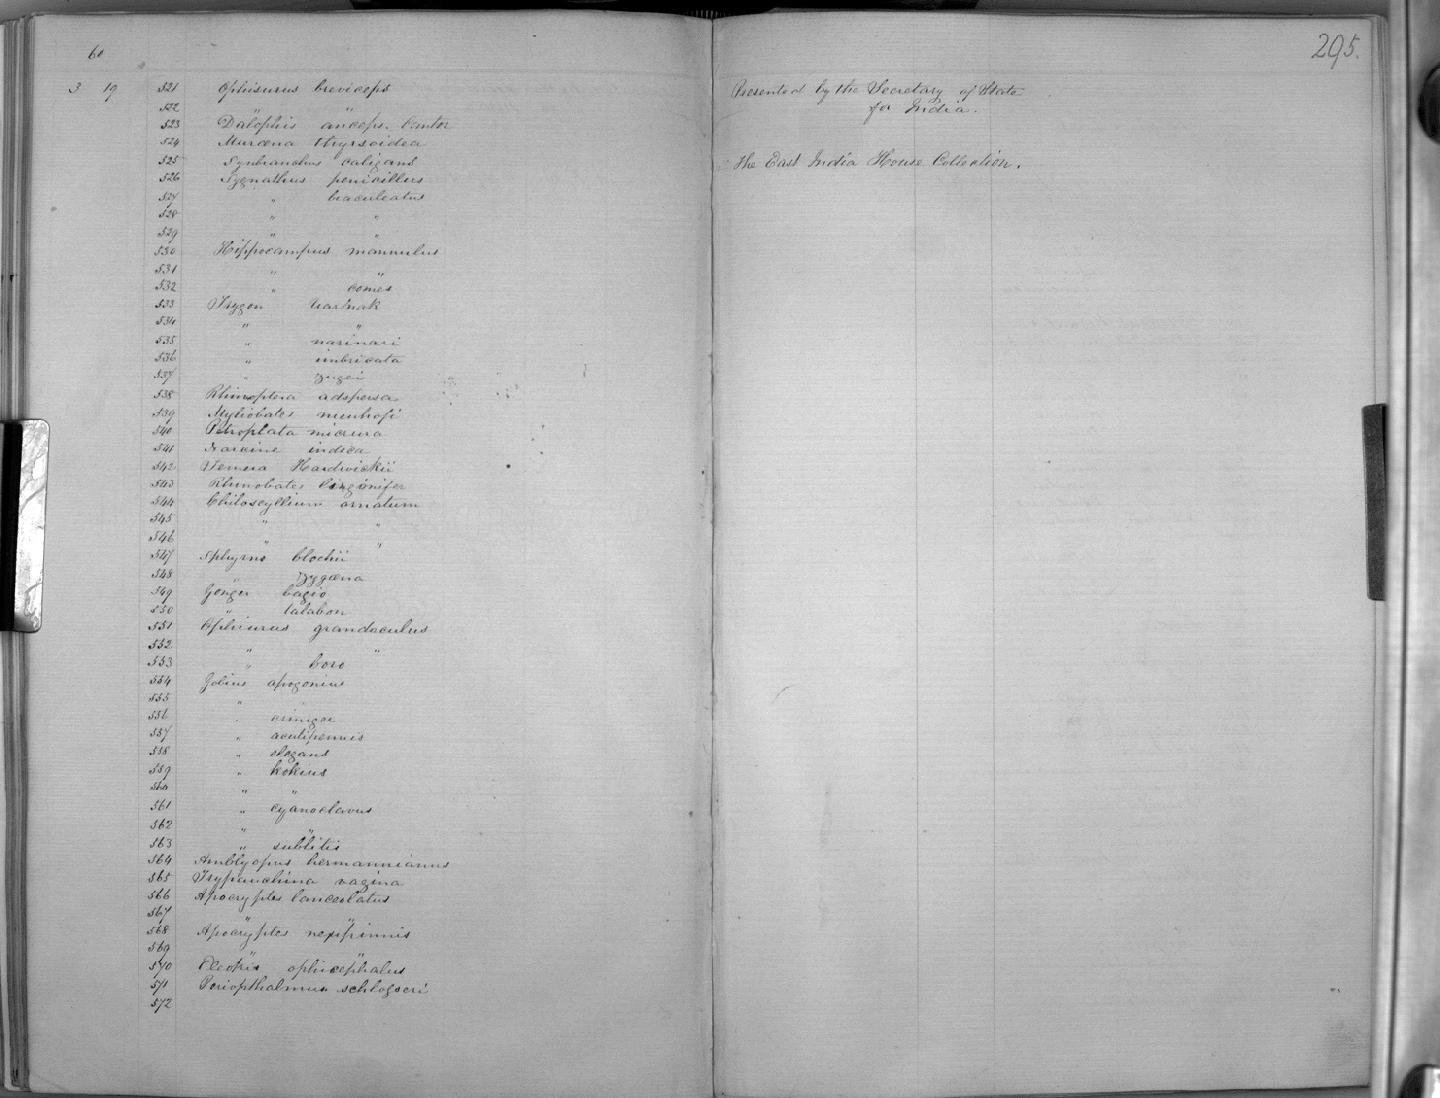 60
295.
3 19 521 Ophisurus breviceps
522 " "
523 Dalophis anceps. Cantor
524 Muræna thyrsoidea
525 Synbranchus caligans
526 Sygnathus penicillus
527 " biaculeatus
528 " "
529 " "
530 Hippocampus mannulus
531 " "
532 " comes
533 Trygon Uarnak
534 " "
535 " narinari
536 " imbricata
537 " zugei
538 Rhinoptera adspersa
539 Myliobates nieuhofi
540 Pteroplata micrura
541 Narcine indica
542 Temera Hardwickii
543 Rhinobates ligonifer
544 Chiloscyllium ornatum
545 " "
546 " "
547 Sphyrna blochii
548 " zygæna
549 Conger bagio
550 " talabon
551 Ophiurus grandoculus
552 " "
553 " boro
554 Gobius apogonius
555 "
556 " criniger
557 " acutipennis
558 " elegans
559 " kokius
560 " "
561 " cyanoclavus
562 " "
563 " sublitis
564 Amblyopus hermannianus
565 Trypauchina vagina
566 Apocryptes lanceolatus
567 " "
568 Apocryptes nexipinnis
569 " "
570 Eleotris ophicephalus
571 Periopthalmus schlosseri
572
Presented by the Secretary of State
for India.
The East India House Collection.